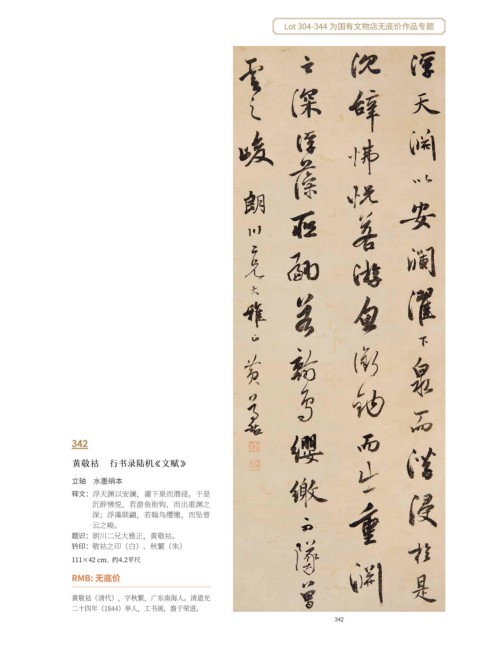 Lot 304-344 为国有文物店无底价作品专题
浮天渊以安澜濯下泉而潜浸于是
沈辞怫悦若游鱼衔钩而出重渊
之深浮藻联翩若翰鸟缨缴而坠曾
云之峻 朗川二兄大雅正 黄敬祜
342
黄敬祜 行书录陆机《文赋》
立轴 水墨绢本
释文：浮天渊以安澜，濯下泉而潜浸。于是
沉辞怫悦，若游鱼衔钩，而出重渊之
深；浮藻联翩，若翰鸟缨缴，而坠曾
云之峻。
题识：朗川二兄大雅正，黄敬祜。
钤印：敬祜之印（白）、秋蘩（朱）
111×42 cm. 约4.2平尺
RMB: 无底价
黄敬祜（清代），字秋蘩，广东南海人。清道光
二十四年（1844）举人。工书画，澹于荣进。
342